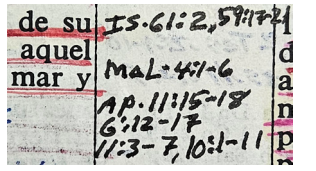 de su
aquel
mar y
IS. 61:2, 59:17-21
MAL- 4:1-6
AP. 11:15-18
6:12-17
11:3-7, 10:1-11